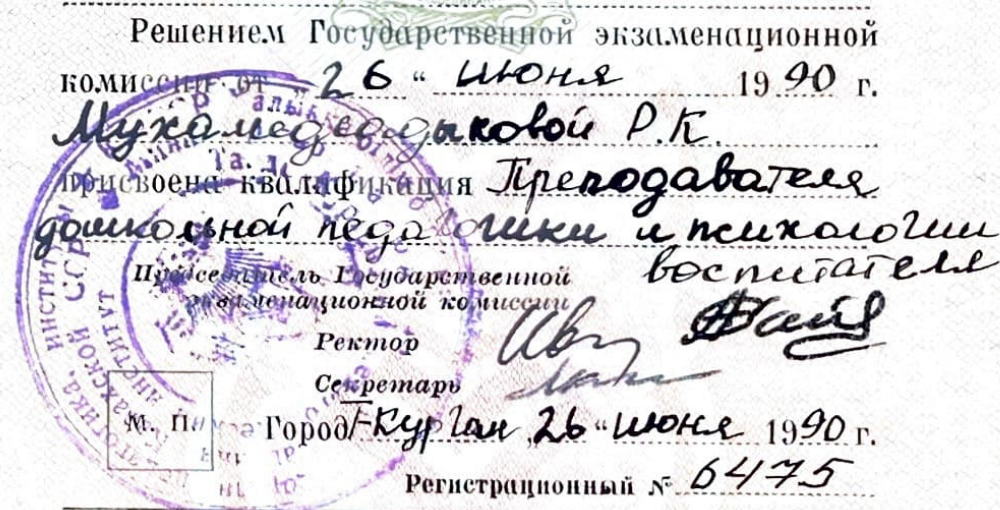 Решением Государственной экзаменационной
комиссии от „26“ июня 1990 г.
Мухамедсадыковой Р.К.
присвоена квалификация Преподавателя
дошкольной педагогики и психологии
воспитателя
Председатель Государственной
экзаменационной комиссии
Ректор
Секретарь
М. П.
Город Т-Курган „26“ июня 1990 г.
Регистрационный № 6475